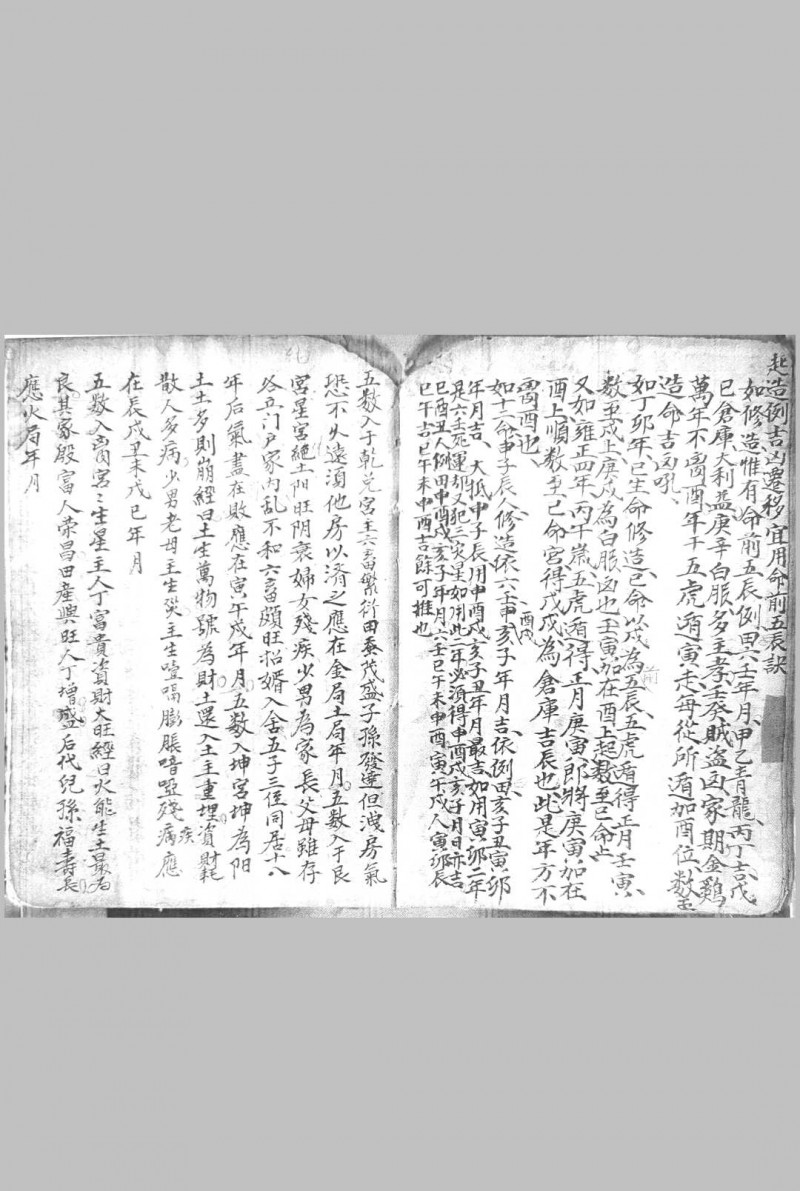 起造例吉凶遷移宜用命前五辰訣
如修造惟有命前五辰例田六壬年月甲乙青龍丙丁吉戊
己倉庫大利益庚辛白服多主孝壬癸賊盜凶家期金鷄
萬年不啚酉年干五虎遁寅走毋從所遁加酉位數至
造命吉凶吼
如丁卯年巳生命修造巳命以戌為五辰五虎遁得正月壬寅
數至戌上庚戌為白服凶也壬寅加在酉上起数至巳命止
又如雍正四年丙午歲五虎遁得正月庚寅即將庚寅加在
酉上順數至巳命宮得戊戌為倉庫吉辰也此是年方不
啚酉也
如十二命申子辰人修造依六壬申酉戌亥子年月吉依例田亥子丑寅卯
年月吉大抵申子辰用申酉戌亥子丑年月最吉如用寅卯二年
是六壬死運刼又犯三災星如用此二年必湏得申酉戌亥子月日亦吉
巳酉丑人例田申酉戌亥子年月六壬巳午未申酉寅午戌人寅卯辰
巳午吉巳午未申酉吉餘可推也
五数入于乾兑宮主六畜繁衍田蚕茂盛子孫發達但洩房氣
恐不久遠湏他房以濟之應在金局土局年月五数入于艮
宮星宮絕土阳旺阴衰婦女殘疾少男為家長父母雖存
各立门户家内乱不和六畜頗旺招婿入舍五子三位同居十八
年后氣盡在敗應在寅午戌年月五数入坤宮坤為阳
土土多則崩經曰土生萬物號為財土還入土主重埋資財耗
散人多病少男老母主生災主生噎嗝膨脹喑啞殘疾病應
在辰戌丑未戊巳年月
五数入离宮宮生星主人丁富貴資財大旺經曰火能生土最為
良其家殷富人荣昌田產興旺人丁增盛后代兒孫福壽長
應火局年月